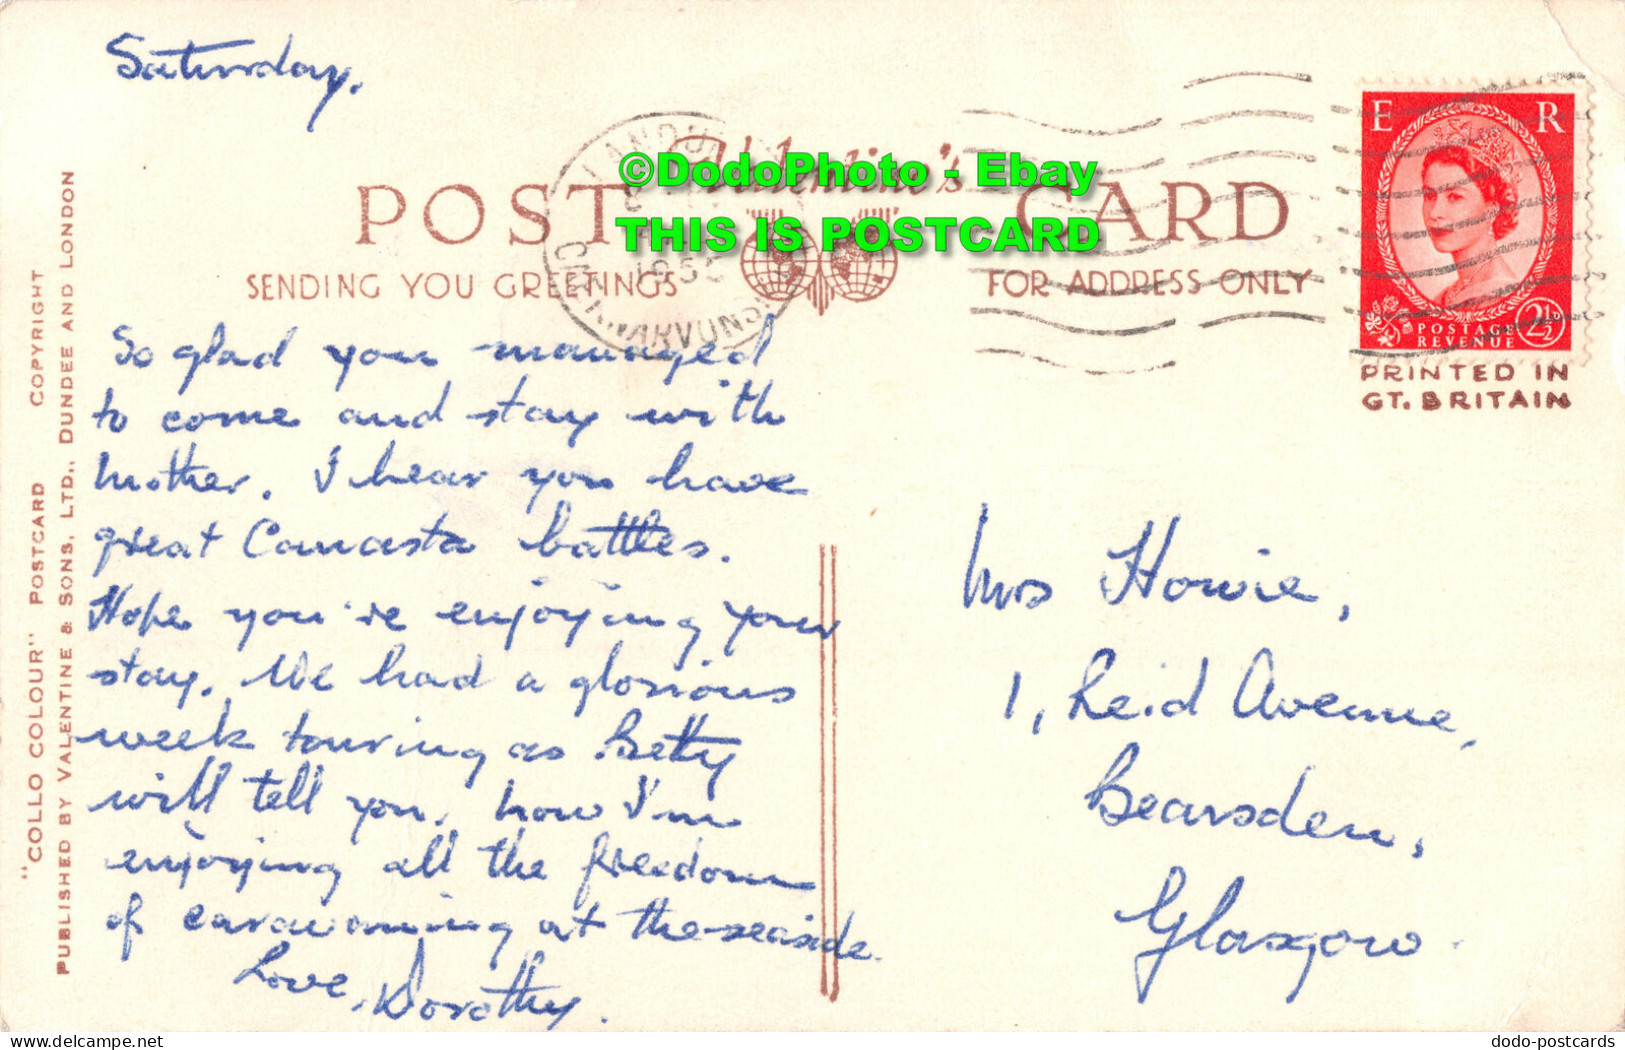 Saturday.
Valentine's
POST CARD
SENDING YOU GREETINGS
FOR ADDRESS ONLY
©DodoPhoto - Ebay
THIS IS POSTCARD
CAERNARVONSHIRE
E R
POSTAGE
REVENUE
2½D
PRINTED IN
GT. BRITAIN
So glad you managed
to come and stay with
Mother. I hear you have
great Canasta battles.
Hope you're enjoying your
stay. We had a glorious
week touring as Betty
will tell you. Now I'm
enjoying all the freedom
of caravanning at the seaside.
Love, Dorothy.
Mrs Howie,
1, Reid Avenue,
Bearsden,
Glasgow.
"COLLO COLOUR" POSTCARD COPYRIGHT
PUBLISHED BY VALENTINE & SONS, LTD., DUNDEE AND LONDON
dodo-postcards